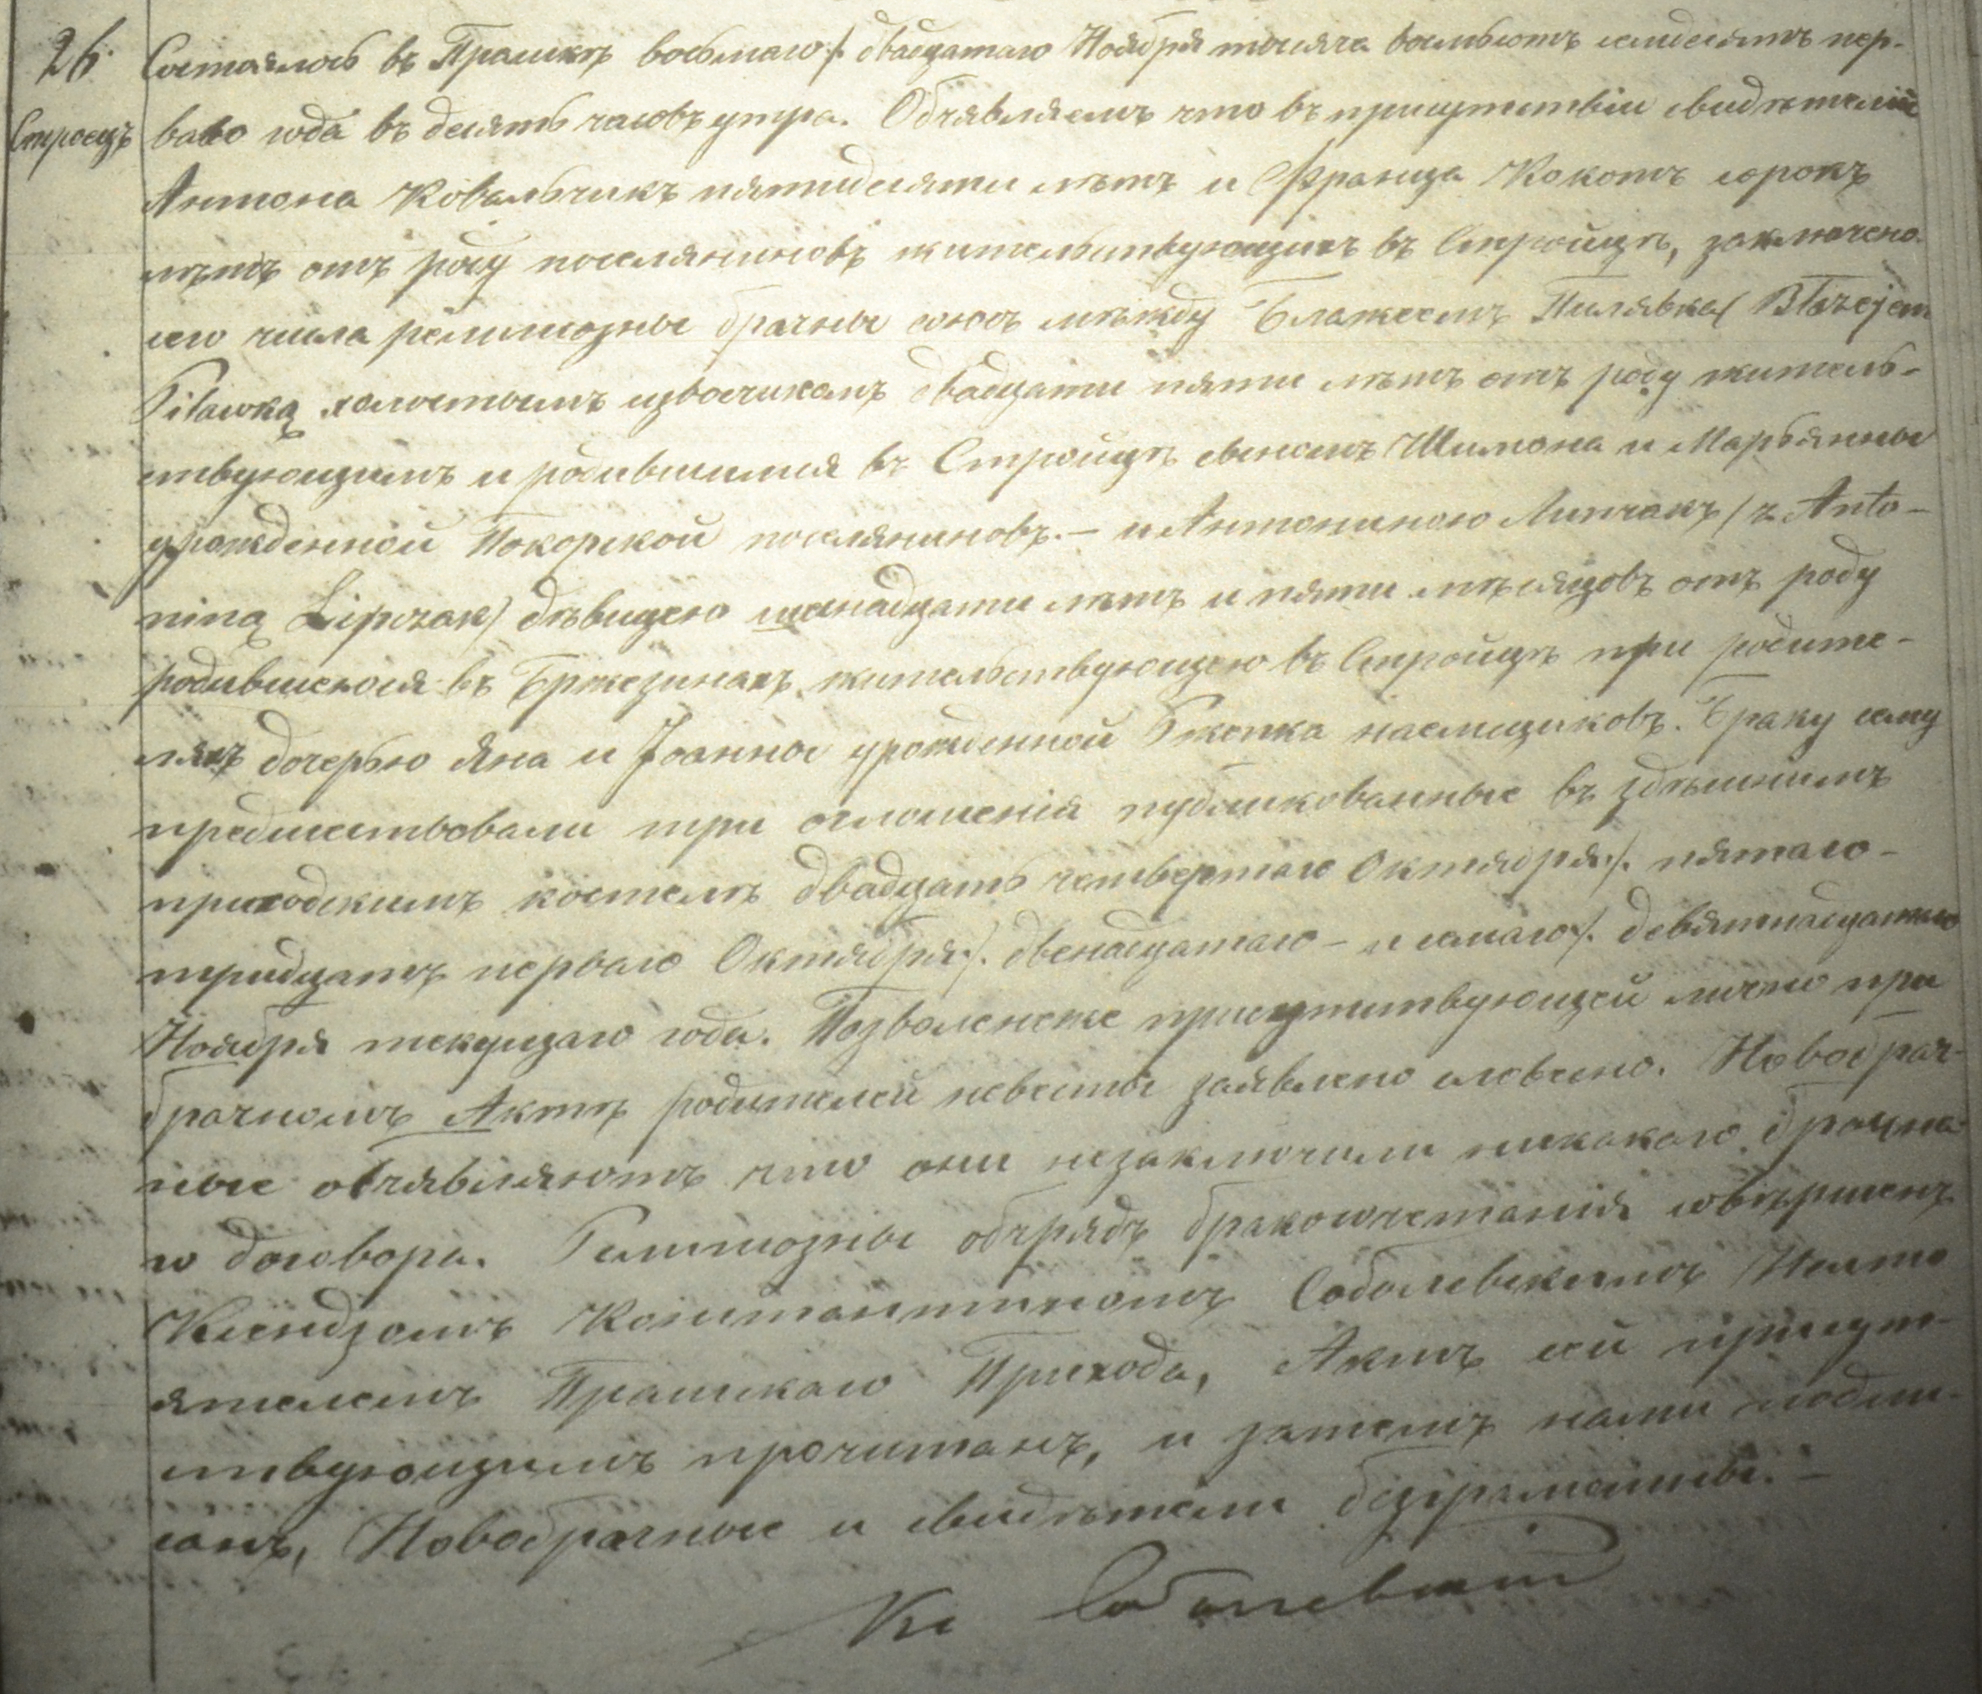 26.
Строецъ
Состоялось въ Прашкѣ восьмаго /. двадцатаго Ноября тысяча восмьсотъ семдесятъ пер-
ваго года въ десять часовъ утра. Объявляемъ что въ присутствіи свидѣтелей
Антона Ковальчикъ пятидесяти лѣтъ и Франца Кокотъ сорокъ
лѣтъ отъ роду поселяниновъ жительствующихъ въ Стройцѣ, заключено
сего числа религіозны брачны союзъ мѣжду Блажеемъ Пилявка (Błażejem
Piławką холостымъ извосчикомъ двадцати пяти лѣтъ отъ роду житель-
ствующимъ и родившимся въ Стройцѣ сыномъ Шимона и Марьянны
урожденной Покорской поселяниновъ. — и Антониною Липчакъ (z Anto-
niną Lipczak) дѣвицею шеснадцати лѣтъ и пяти мѣсяцовъ отъ роду
родившеюся въ Бржезинахъ жительствующею въ Стройцѣ при родите-
ляхъ дочерью Яна и Іоанны урожденной Ржепка наемщиковъ. Браку сему
предшествовали три оглошенія публикованные въ здѣшнимъ
приходскимъ костелѣ двадцать четвертаго Октября /. пятаго —
тридцать перваго Октября /. двенадцатаго — и семаго /. девятнадцатаго
Ноября текущаго года. Позволеніе присутствующей лично при
брачномъ Актѣ родителей невесты заявлено словесно. Новобрач-
ные объявляютъ что они незаключили никакого брачна-
го договора. Религіозны обрядъ бракосочетанія совѣршенъ
Ксендзомъ Константиномъ Соболевскимъ Насто
ятелемъ Прашкаго Прихода, Актъ сей присут-
ствующимъ прочитанъ, и затемъ нами подпи-
санъ, Новобрачные и свидѣтели безграмотны. —
Кс Соболевскій